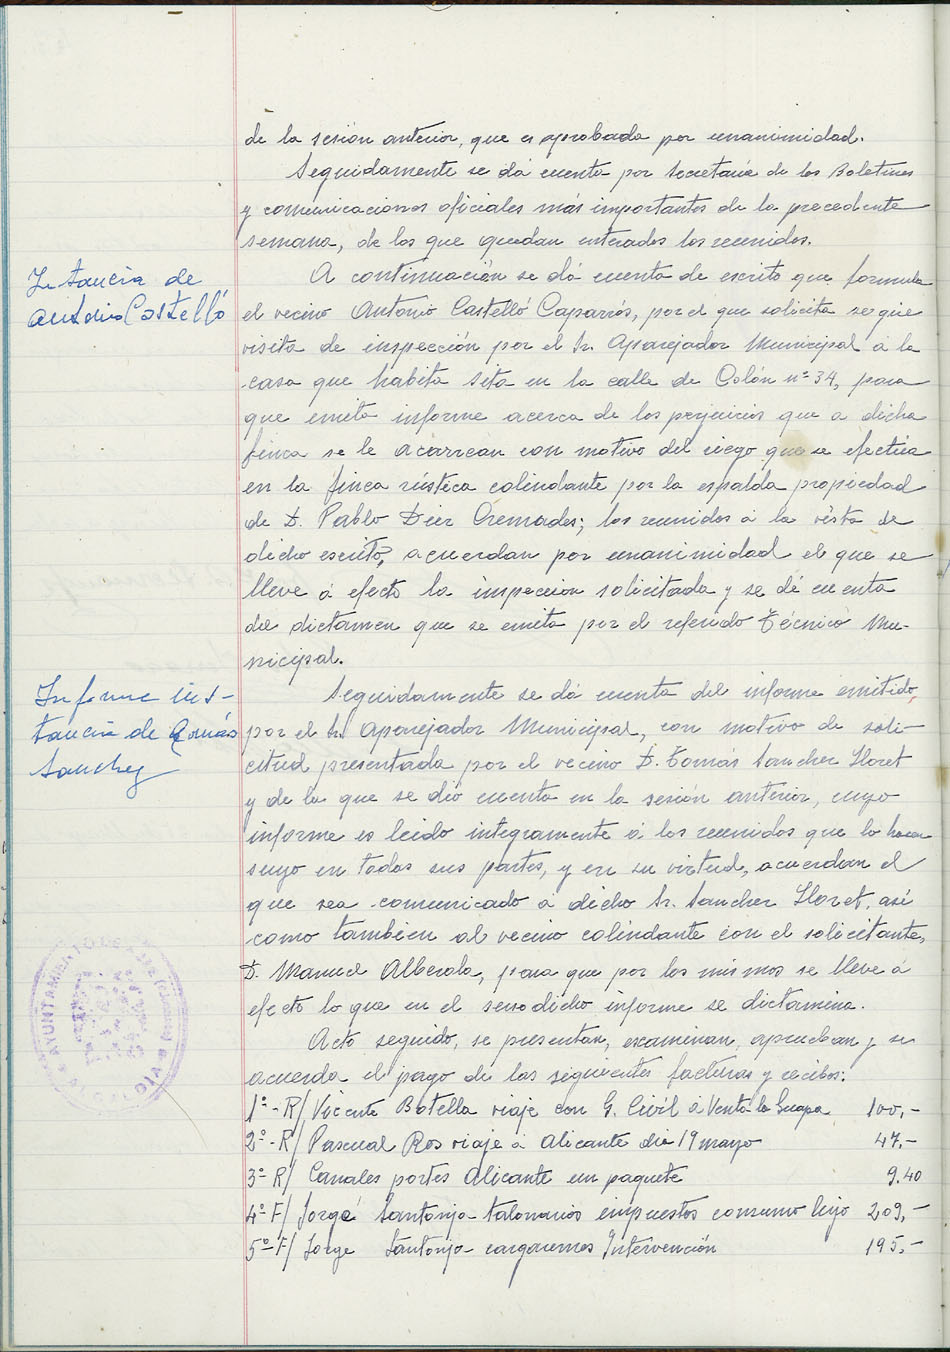 de la sesión anterior, que es aprobada por unanimidad.
Seguidamente se dá cuenta por Secretaría de los Boletines
y comunicaciones oficiales más importantes de la precedente
semana, de los que quedan enterados los reunidos.
Instancia de
Antonio Castelló
A continuación se dá cuenta de escrito que formula
el vecino Antonio Castelló Caparrós, por el que solicita se gire
visita de inspección por el Sr. Aparejador Municipal a la
casa que habita sita en la calle de Colón nº 34, para
que emita informe acerca de los perjuicios que a dicha
finca se le acarrean con motivo del riego que se efectúa
en la finca rústica colindante por la espalda propiedad
de D. Pablo Diez Cremades; los reunidos a la vista de
dicho escrito, acuerdan por unanimidad el que se
lleve á efecto la inspección solicitada y se dé cuenta
del dictamen que se emita por el referido Técnico Mu-
nicipal.
Informe ins-
tancia de Tomás
Sanchez
Seguidamente se dá cuenta del informe emitido,
por el Sr. Aparejador Municipal, con motivo de soli-
citud presentada por el vecino D. Tomás Sanchez Lloret
y de la que se dió cuenta en la sesión anterior, cuyo
informe es leido integramente á los reunidos que lo hacen
suyo en todas sus partes, y en su virtud, acuerdan el
que sea comunicado a dicho Sr. Sanchez Lloret, asi
como tambien al vecino colindante con el solicitante,
D. Manuel Alberola, para que por los mismos se lleve á
efecto lo que en el susodicho informe se dictamina.
Acto seguido, se presentan, examinan, aprueban y se
acuerda el pago de las siguientes facturas y recibos:
1º-R/ Vicente Botella viaje con G. Civil á Venta la Guapa 100,-
2º-R/ Pascual Ros viaje á Alicante dia 19 mayo 47,-
3º R/ Canales portes Alicante un paquete 9.40
4º F/ Jorge Santonja-talonarios impuestos consumo lujo 209,-
5º-F/ Jorge Santonja-cargaremes Intervención 195,-
AYUNTAMIENTO DE
ALCALDIA